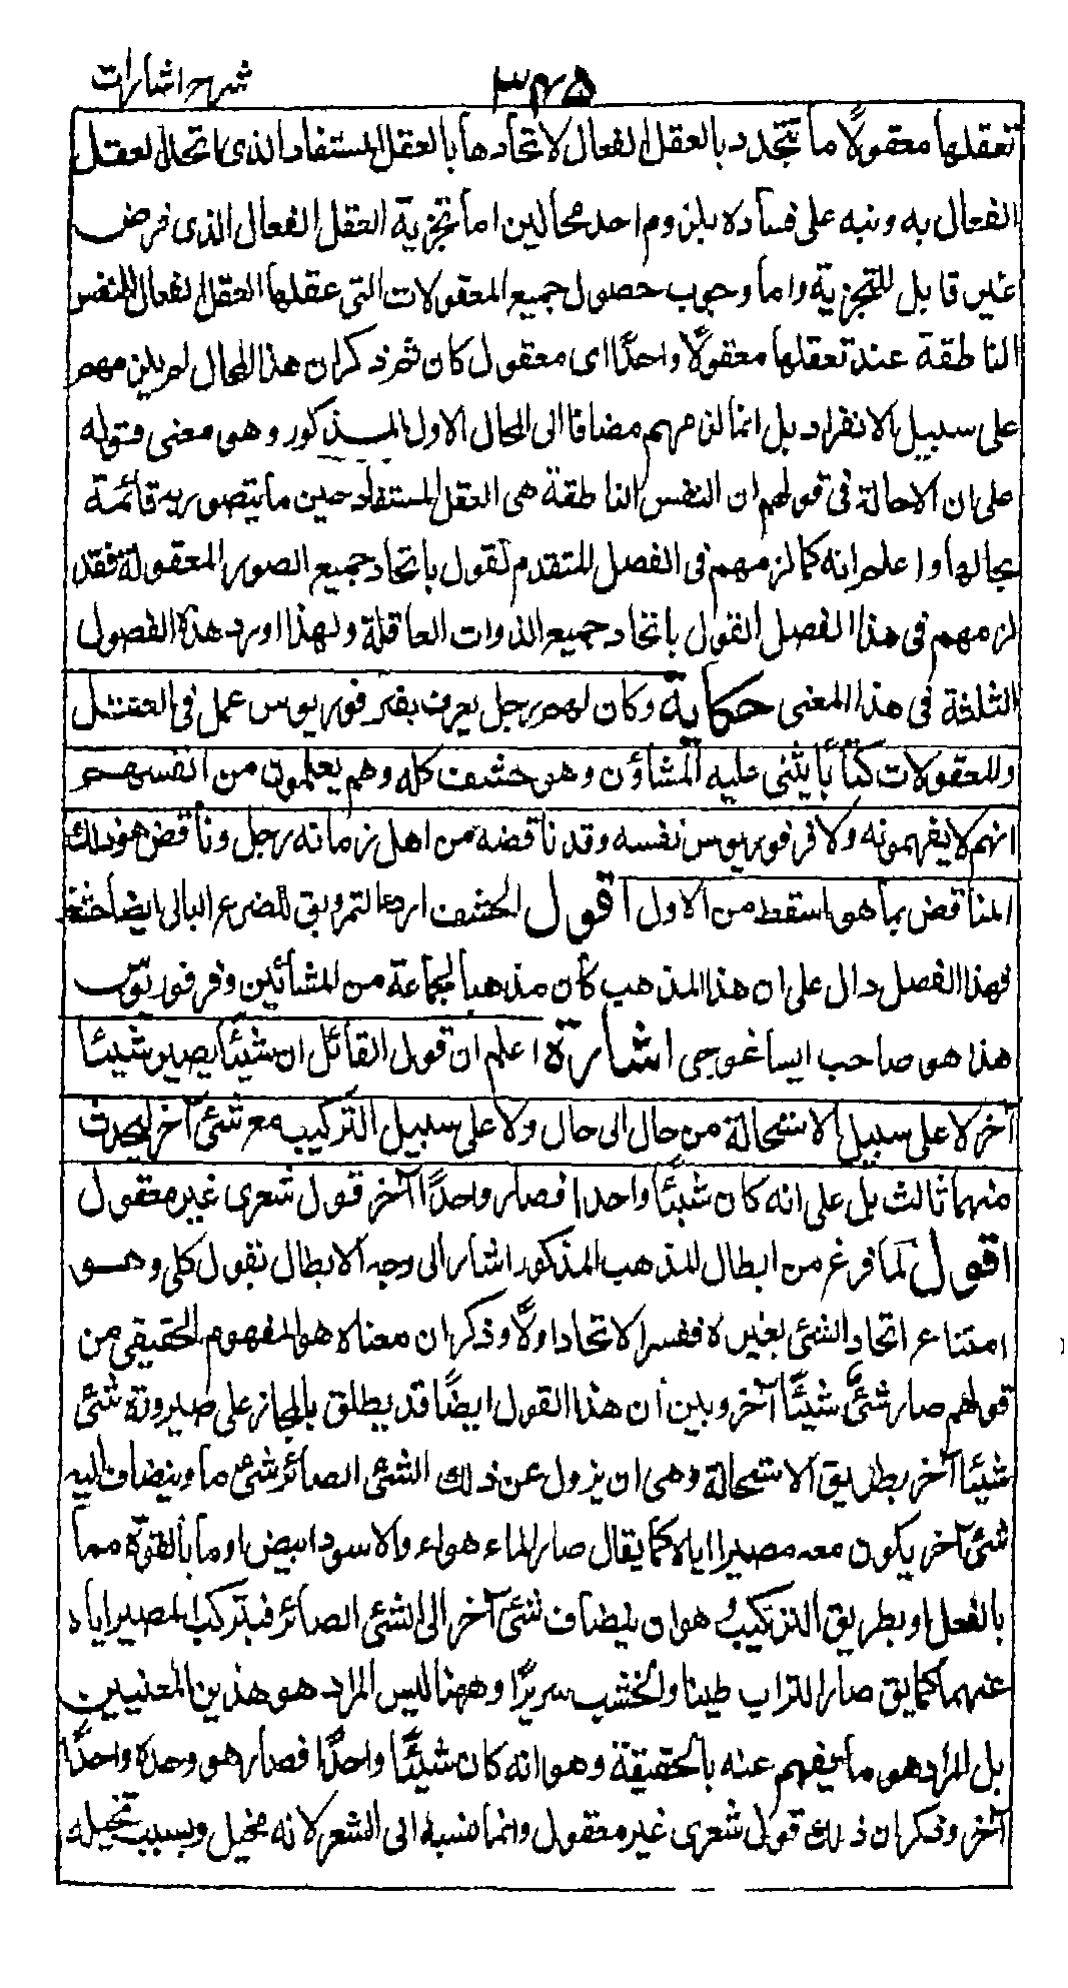 شرح اشارات
۳۴۵
تعقلها معقولًا ما تتجدد بالعقل الفعال لاتحادها بالعقل المستفاد الذى اتحد العقل
الفعال به ونبه على فساده بلزوم احد محالين اما تجزية العقل الفعال الذى فرض
غير قابل للتجزية واما وجوب حصول جميع المعقولات التى عقلها العقل الفعال للنفس
الناطقة عند تعقلها معقولًا واحدًا اى معقول كان ثم ذكر ان هذا المحال لم يلزمهم
على سبيل الانفراد بل انما لزمهم مضافا الى المحال الاول المذكور وهو معنى قوله
على ان الاحالة فى قولهم ان النفس الناطقة هى العقل المستفاد حين ما يتصور به قائمة
بحالها واعلم انه كما لزمهم فى الفصل المتقدم القول باتحاد جميع الصور المعقولة فقد
لزمهم فى هذا الفصل القول باتحاد جميع الذوات العاقلة ولهذا اورد هذه الفصول
الثلثة فى هذا المعنى حكاية وكان لهم رجل يعرف بفرفوريوس عمل فى العقل
والمعقولات كتابًا يثنى عليه المشاؤن وهو حشف كله وهم يعلمون من انفسهم
انهم لا يفهمونه ولا فرفوريوس نفسه وقد ناقضه من اهل زمانه رجل وناقض هو ذلك
المناقض بما هو اسقط من الاول اقول الحشف اردء التمر ويق للضرع البالى ايضا حشف
فهذا الفصل دال على ان هذا المذهب كان مذهبا لجماعة من المشائين وفرفوريوس
هذا هو صاحب ايساغوجى اشارة اعلم ان قول القائل ان شيئًا يصير شيئًا
آخر لا على سبيل الاستحالة من حال الى حال ولا على سبيل التركيب مع شئ آخر ليحدث
منهما ثالث بل على انه كان شيئًا واحدا فصار واحدًا آخر قول شعرى غير معقول
اقول لما فرغ من ابطال المذهب المذكور اشار الى وجه الابطال بقول كلى وهو
امتناع اتحاد الشئ بغيره ففسر الاتحاد اولًا وذكر ان معناه هو المفهوم الحقيقى من
قولهم صار شئٌ شيئًا آخر وبين أن هذا القول ايضًا قد يطلق بالمجاز على صيرورة شئ
شيئًا آخر بطريق الاستحالة وهى ان يزول عن ذلك الشئ الصائر شئ ما وينضاف اليه
شئ آخر يكون معه مصيرا اياه كما يقال صار الماء هواء والاسود ابيض او ما بالقوة مما
بالفعل او بطريق التركيب وهو ان ينضاف شئ آخر الى الشئ الصائر فيتركب المصير اياه
عنهما كما يق صار التراب طينا والخشب سريرًا وههنا ليس المراد هو هذين المعنيين
بل المراد هو ما يفهم عنه بالحقيقة وهو انه كان شيئًا واحدًا فصار هو وحده واحدًا
آخر وذكر ان ذلك قول شعرى غير معقول وانما نسبه الى الشعر لانه مخيل وبسبب تخيله